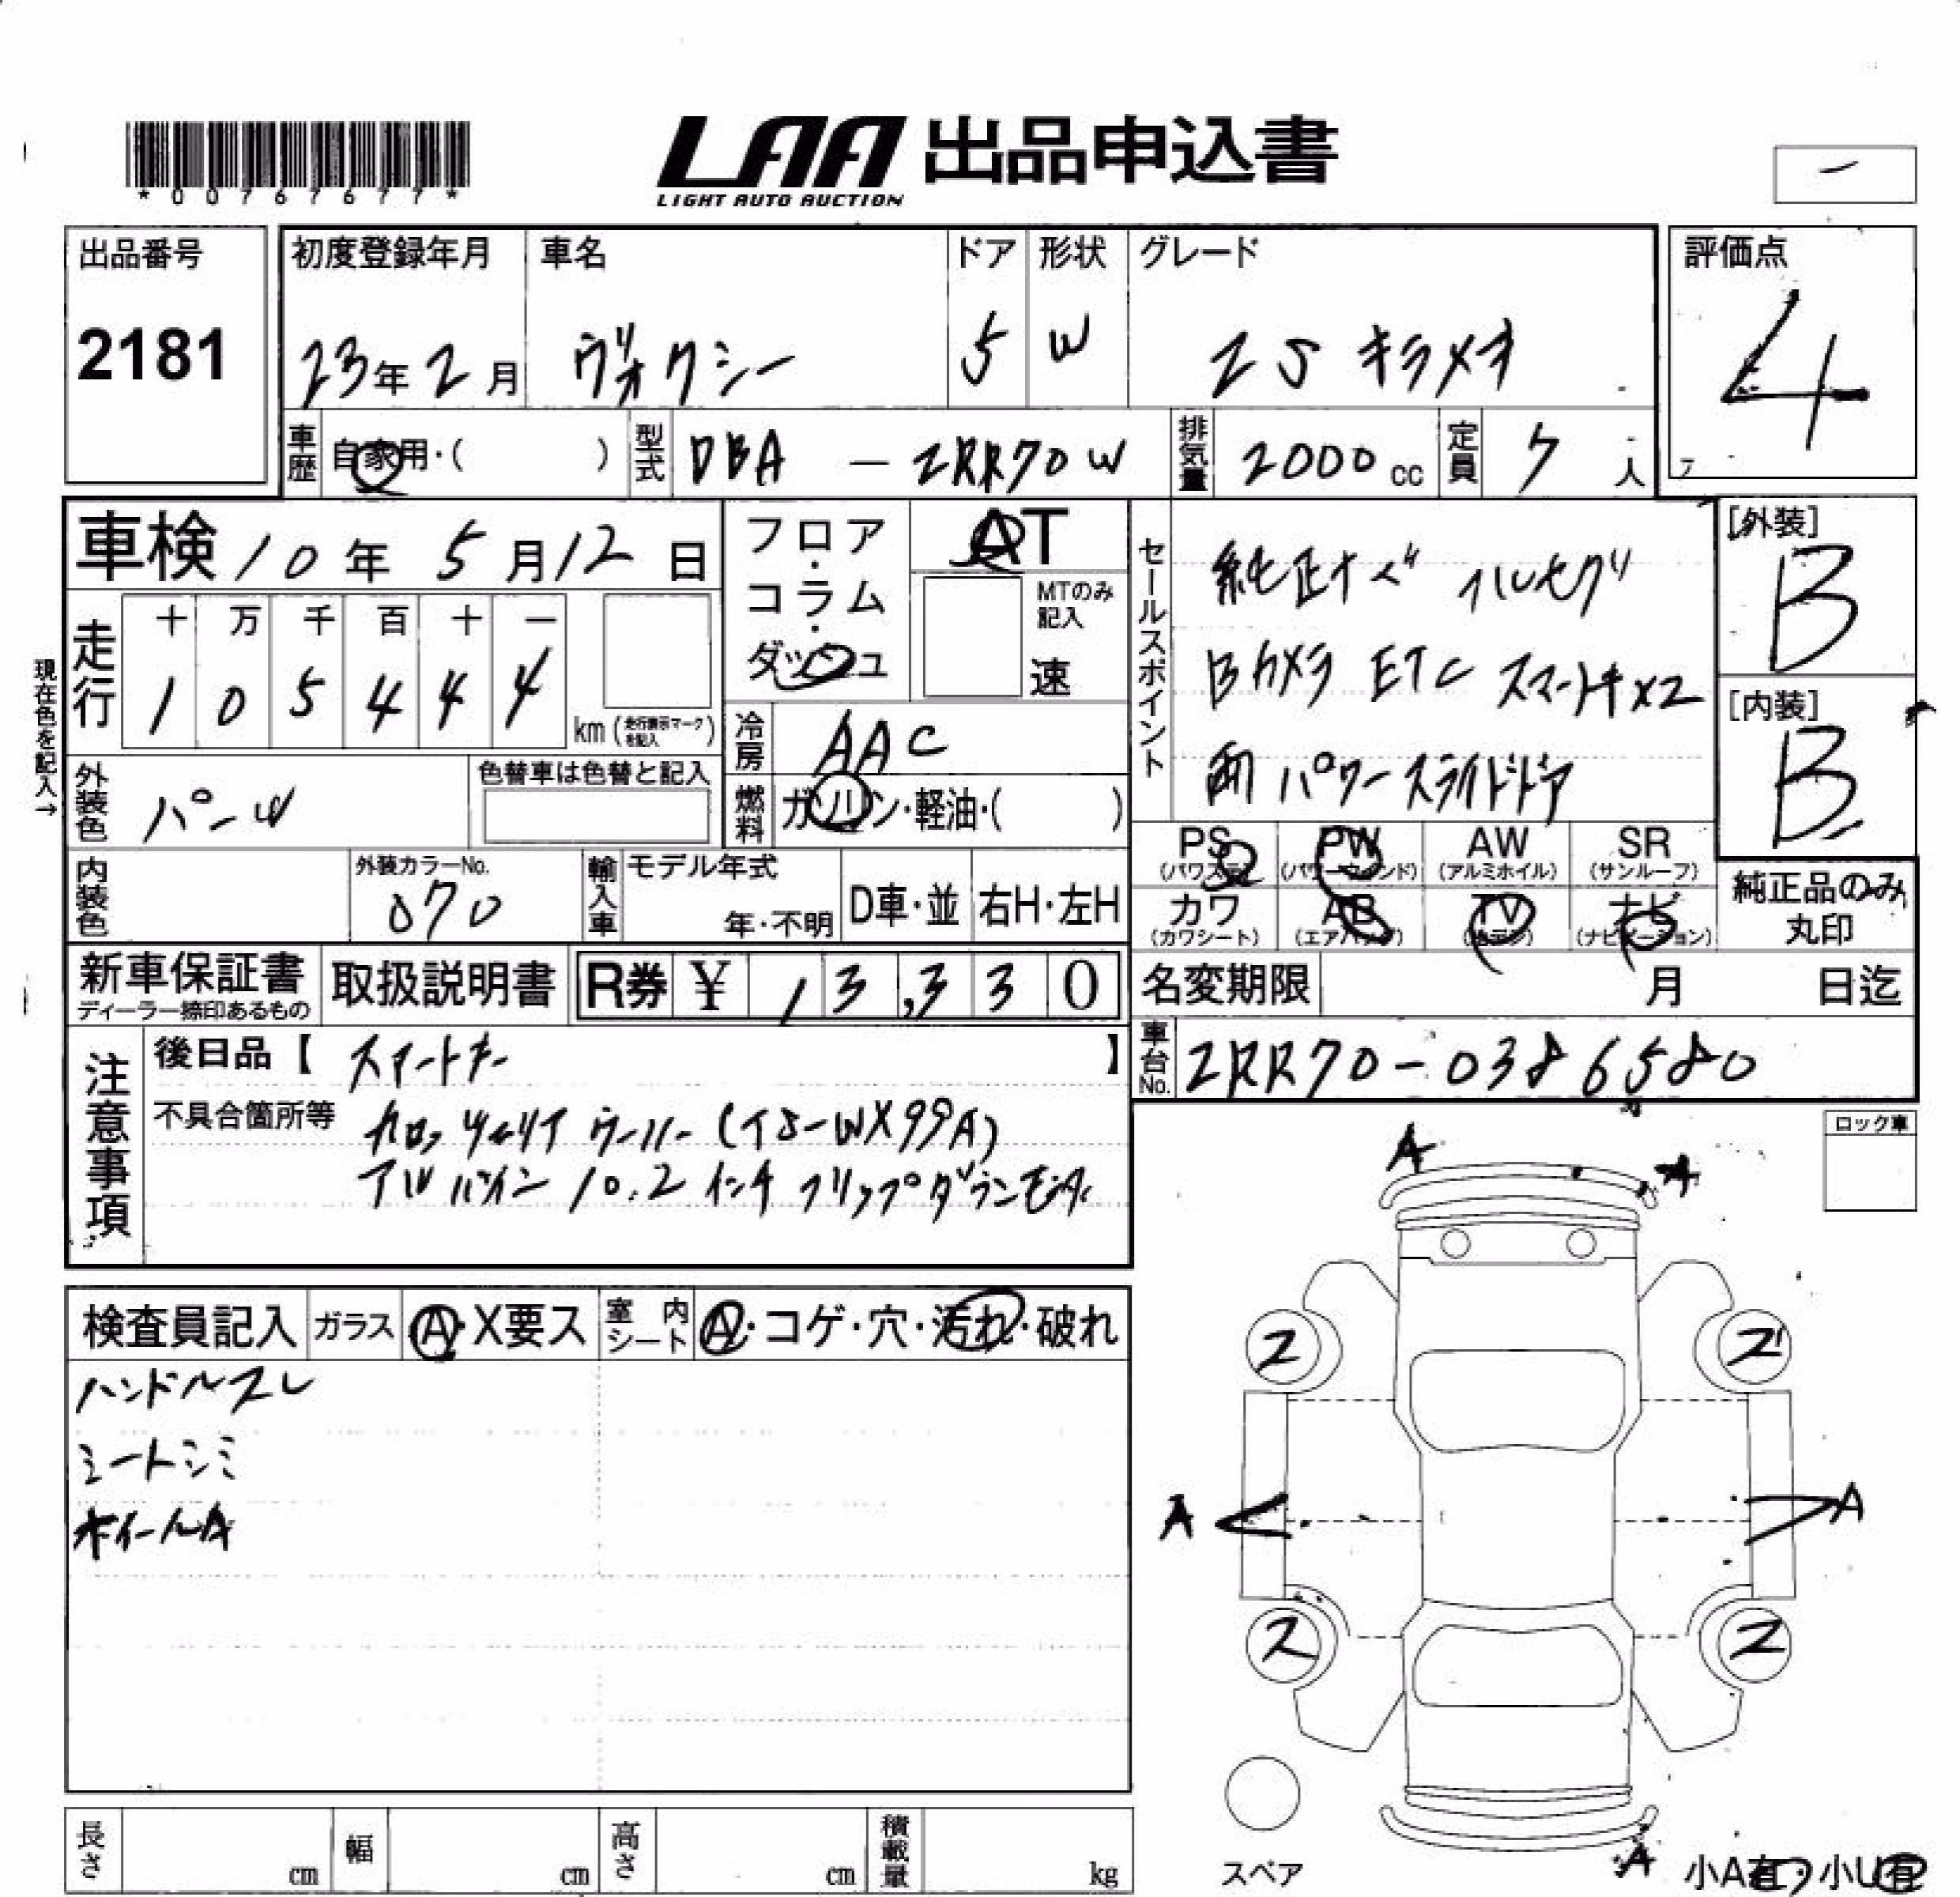 *0076767 7*
LAA 出品申込書
LIGHT AUTO AUCTION
ー
出品番号
2181
初度登録年月
23年2月
車名
ヴォクシー
ドア
5
形状
W
グレード
ZS キラメキ
評価点
4
車歴 自家用・( )
型式 DBA - ZRR70W
排気量 2000 cc
定員 7人
車検 10年 5月12日
フロア・コラム・ダッシュ
AT
MTのみ記入
速
セールスポイント
純正ナビ フルセグ
Bカメラ ETC スマートキ×2
両パワースライドドア
[外装]
B
[内装]
B
現在色を記入→
走行
十 万 千 百 十 一
1 0 5 4 4 4
km (走行表示マークを記入)
冷房 AAC
外装色 パールW
色替車は色替と記入
燃料 ガソリン・軽油・( )
PS (パワステ)
PW (パワーウインド)
AW (アルミホイル)
SR (サンルーフ)
カワ (カワシート)
AB (エアバッグ)
TV
ナビ (ナビゲーション)
純正品のみ
丸印
内装色
外装カラーNo.
070
輸入車
モデル年式
年・不明
D車・並
右H・左H
新車保証書
ディーラー捺印あるもの
取扱説明書
R券 ¥ 13,330
名変期限 月 日迄
車台No. ZRR70-0386580
注意事項
後日品【 スマートキー 】
不具合箇所等
カロッツェリア ウーハー (TS-WX99A)
アルパイン 10.2インチ フリップダウンモニター
ロック車
A
A
検査員記入
ガラス A・X要ス
室内シート A・コゲ・穴・汚れ・破れ
ハンドルスレ
シートシミ
ホイールA
ス
ス
A
A
ス
ス
スペア
A
長さ cm
幅 cm
高さ cm
積載量 kg
小A有・小U有